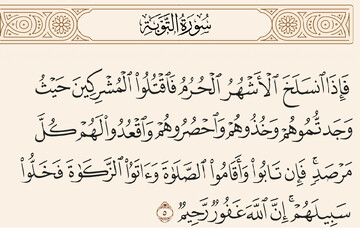 سُورَةُ التَّوۡبَةِ
فَإِذَا ٱنسَلَخَ ٱلۡأَشۡهُرُ ٱلۡحُرُمُ فَٱقۡتُلُوا۟ ٱلۡمُشۡرِكِينَ حَيۡثُ
وَجَدتُّمُوهُمۡ وَخُذُوهُمۡ وَٱحۡصُرُوهُمۡ وَٱقۡعُدُوا۟ لَهُمۡ كُلَّ
مَرۡصَدٖۚ فَإِن تَابُوا۟ وَأَقَامُوا۟ ٱلصَّلَوٰةَ وَءَاتَوُا۟ ٱلزَّكَوٰةَ فَخَلُّوا۟
سَبِيلَهُمۡۚ إِنَّ ٱللَّهَ غَفُورٞ رَّحِيمٞ ٥